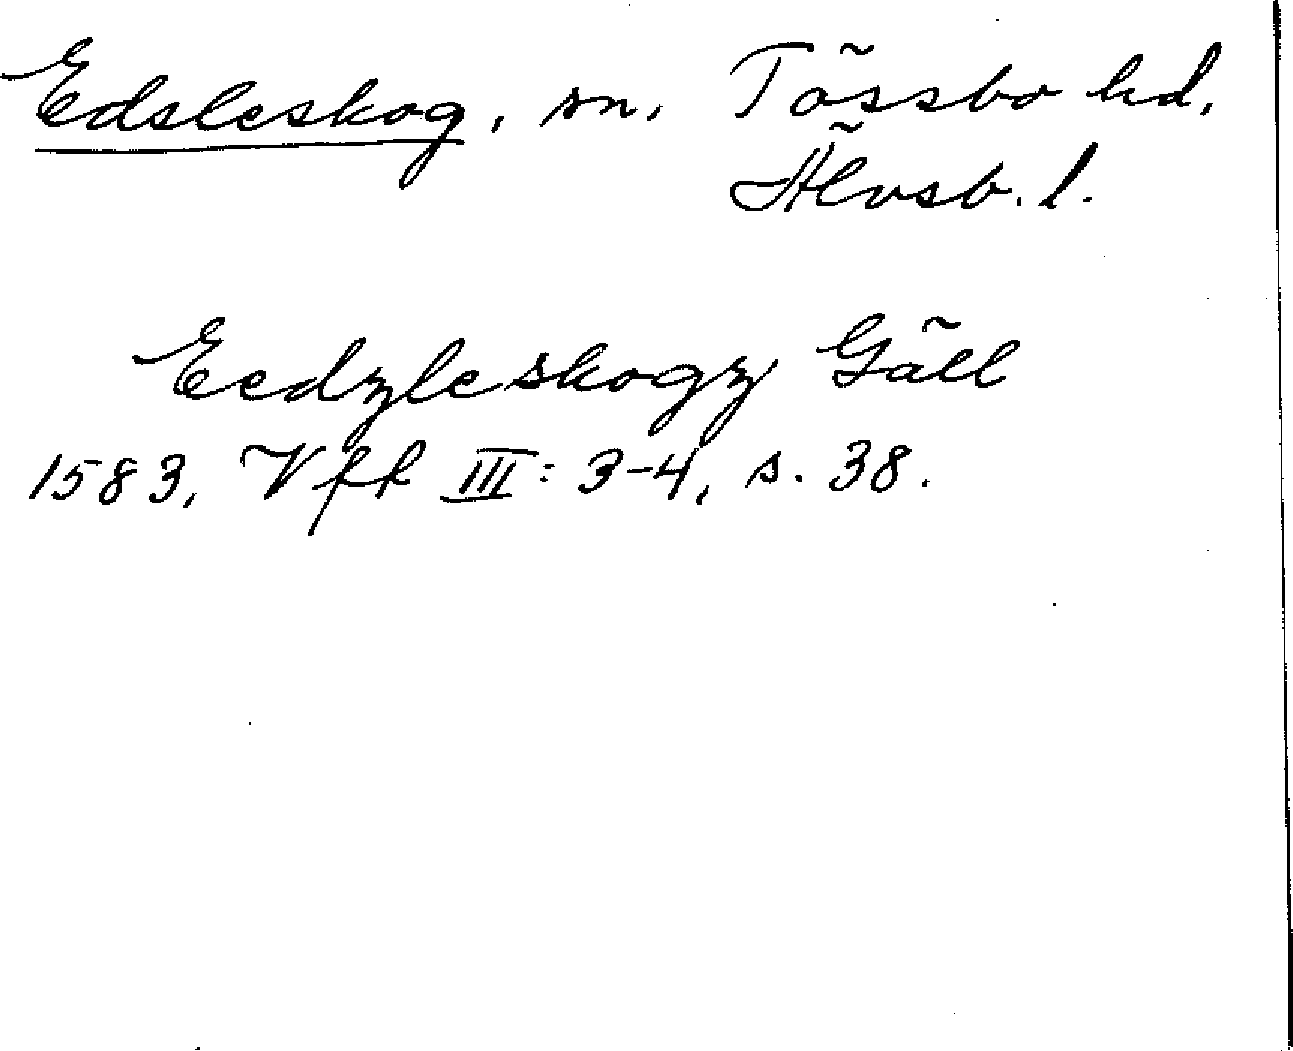 Edsleskog, sn, Tössbo hd,
Älvsb. l.
Eedzleskogz Gäll
1583, Vff III: 3-4, s. 38.